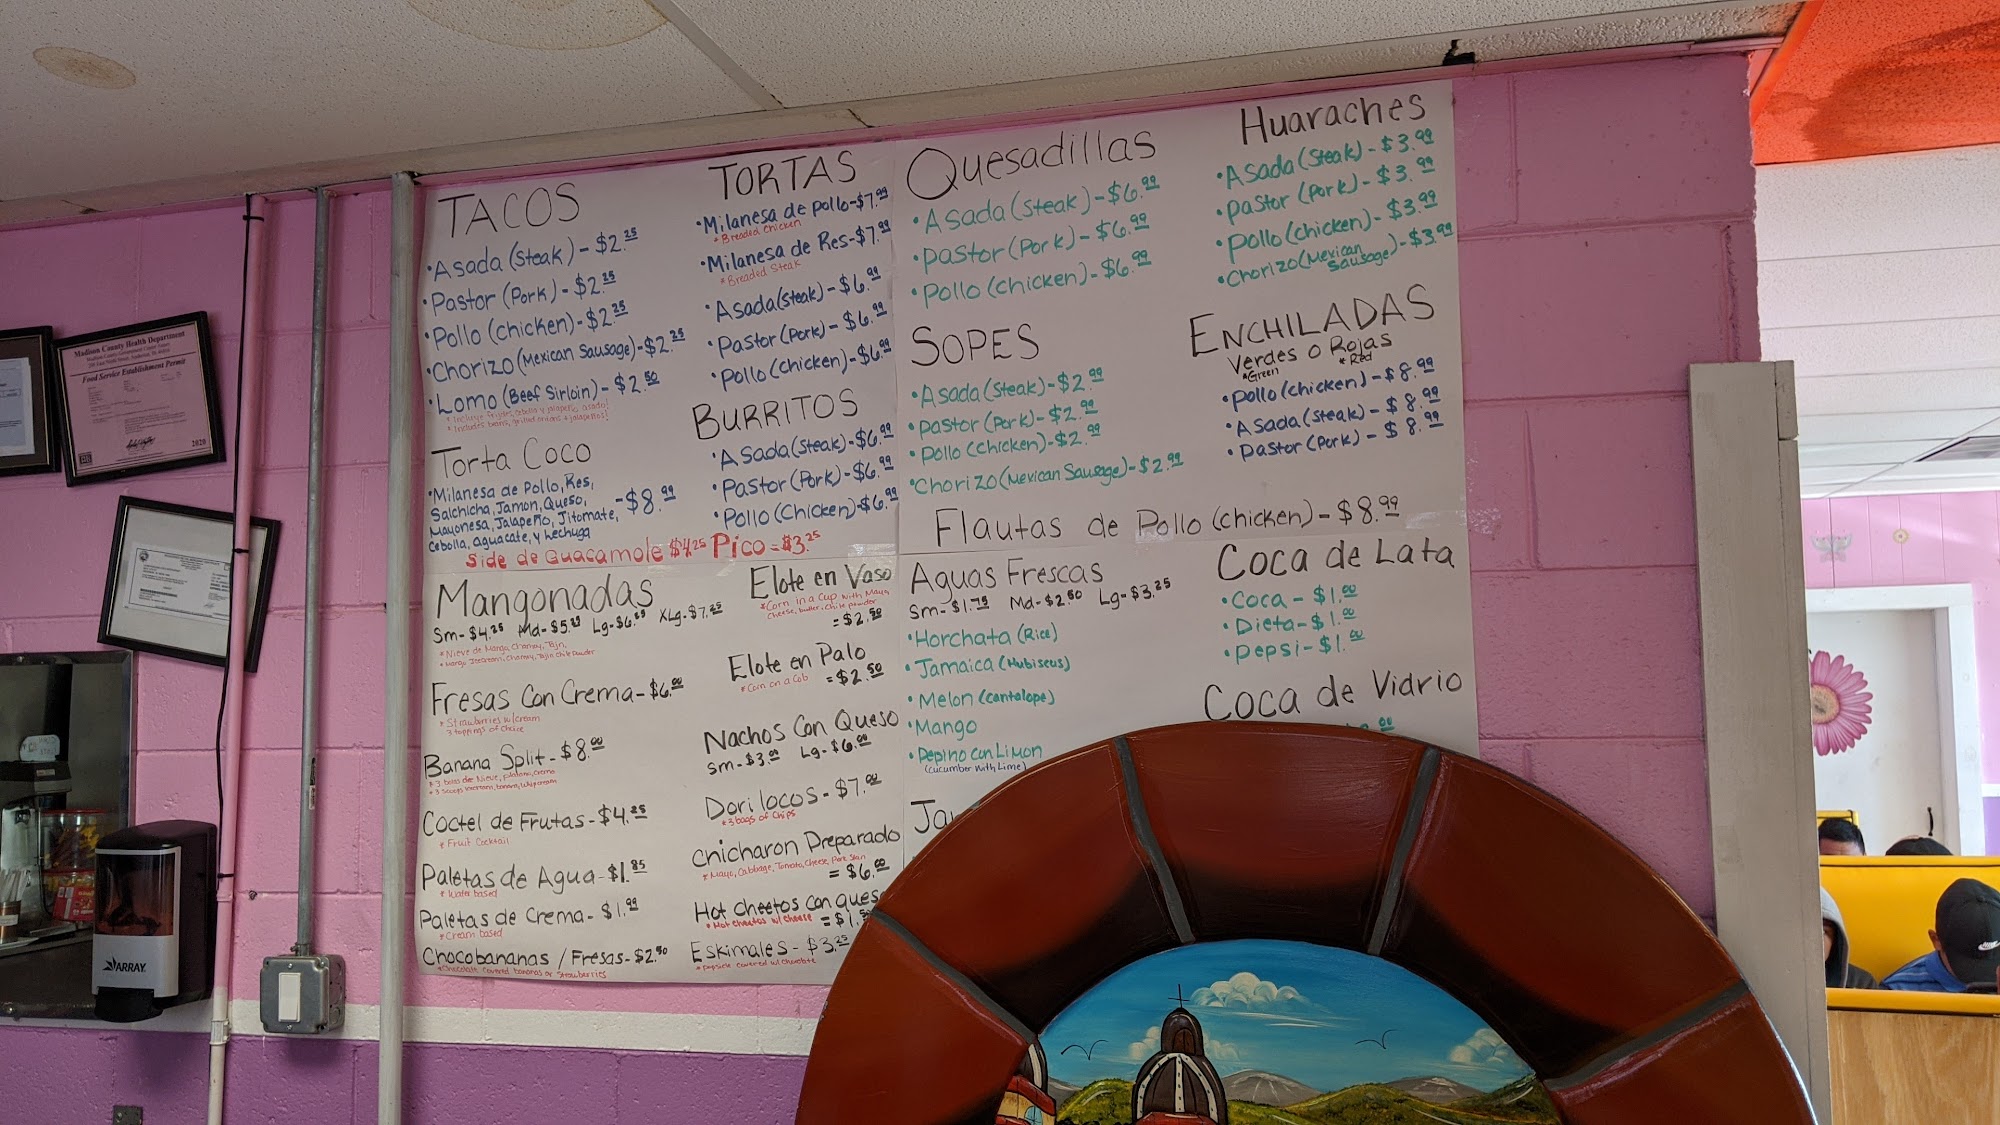 TACOS
• Asada (Steak) - $2.25
• Pastor (Pork) - $2.25
• Pollo (chicken) - $2.25
• Chorizo (Mexican Sausage) - $2.25
• Lomo (Beef Sirloin) - $2.50
* Incluye frijoles, cebolla y jalapeño asado!
* Includes beans, grilled onions + jalapeños!
Torta Coco
• Milanesa de Pollo, Res,
Salchicha, Jamon, Queso,
Mayonesa, Jalapeño, Jitomate, - $8.99
Cebolla, aguacate, y Lechuga
TORTAS
• Milanesa de pollo - $7.99
* Breaded Chicken
• Milanesa de Res - $7.99
* Breaded Steak
• Asada (steak) - $6.99
• Pastor (Pork) - $6.99
• Pollo (chicken) - $6.99
BURRITOS
• Asada (Steak) - $6.99
• Pastor (Pork) - $6.99
• Pollo (Chicken) - $6.99
Side de Guacamole $4.25 Pico = $3.25
Quesadillas
• Asada (steak) - $6.99
• Pastor (Pork) - $6.99
• Pollo (chicken) - $6.99
SOPES
• Asada (Steak) - $2.99
• Pastor (Pork) - $2.99
• Pollo (Chicken) - $2.99
• Chorizo (Mexican Sausage) - $2.99
Huaraches
• Asada (Steak) - $3.99
• Pastor (Pork) - $3.99
• Pollo (chicken) - $3.99
• Chorizo (Mexican Sausage) - $3.99
ENCHILADAS
Verdes o Rojas
* Green * Red
• Pollo (chicken) - $8.99
• Asada (Steak) - $8.99
• Pastor (Pork) - $8.99
Flautas de Pollo (chicken) - $8.99
Mangonadas
Sm - $4.25 Md - $5.25 Lg - $6.25 XLg - $7.25
* Nieve de Mango, Chamoy, Tajin,
* Mango Icecream, Chamoy, Tajin Chile Powder
Fresas Con Crema - $6.00
* Strawberries w/cream
3 toppings of choice
Banana Split - $8.00
* 3 bolas de Nieve, platano, crema
* 3 scoops icecream, banana, whipcream
Coctel de Frutas - $4.25
* Fruit Cocktail
Paletas de Agua - $1.85
* Water based
Paletas de Crema - $1.99
* Cream based
Chocobananas / Fresas - $2.50
* Chocolate covered bananas or strawberries
Elote en Vaso
* Corn in a Cup with Mayo,
cheese, butter, chile powder
= $2.50
Elote en Palo
* Corn on a Cob = $2.50
Nachos Con Queso
Sm - $3.00 Lg - $6.00
Dorilocos - $7.00
* 3 bags of Chips
Chicharon Preparado
* Mayo, Cabbage, Tomato, Cheese, Pork Skin
= $6.00
Hot Cheetos con queso
* Hot cheetos w/ cheese = $1.50
Eskimales - $3.25
* popsicle covered w/ chocolate
Aguas Frescas
Sm - $1.75 Md - $2.50 Lg - $3.25
• Horchata (Rice)
• Jamaica (Hubiscus)
• Melon (Cantalope)
• Mango
• Pepino con Limon
(cucumber with Lime)
Coca de Lata
• Coca - $1.00
• Dieta - $1.00
• Pepsi - $1.00
Coca de Vidrio
Madison County Health Department
Food Service Establishment Permit
2020
ARRAY